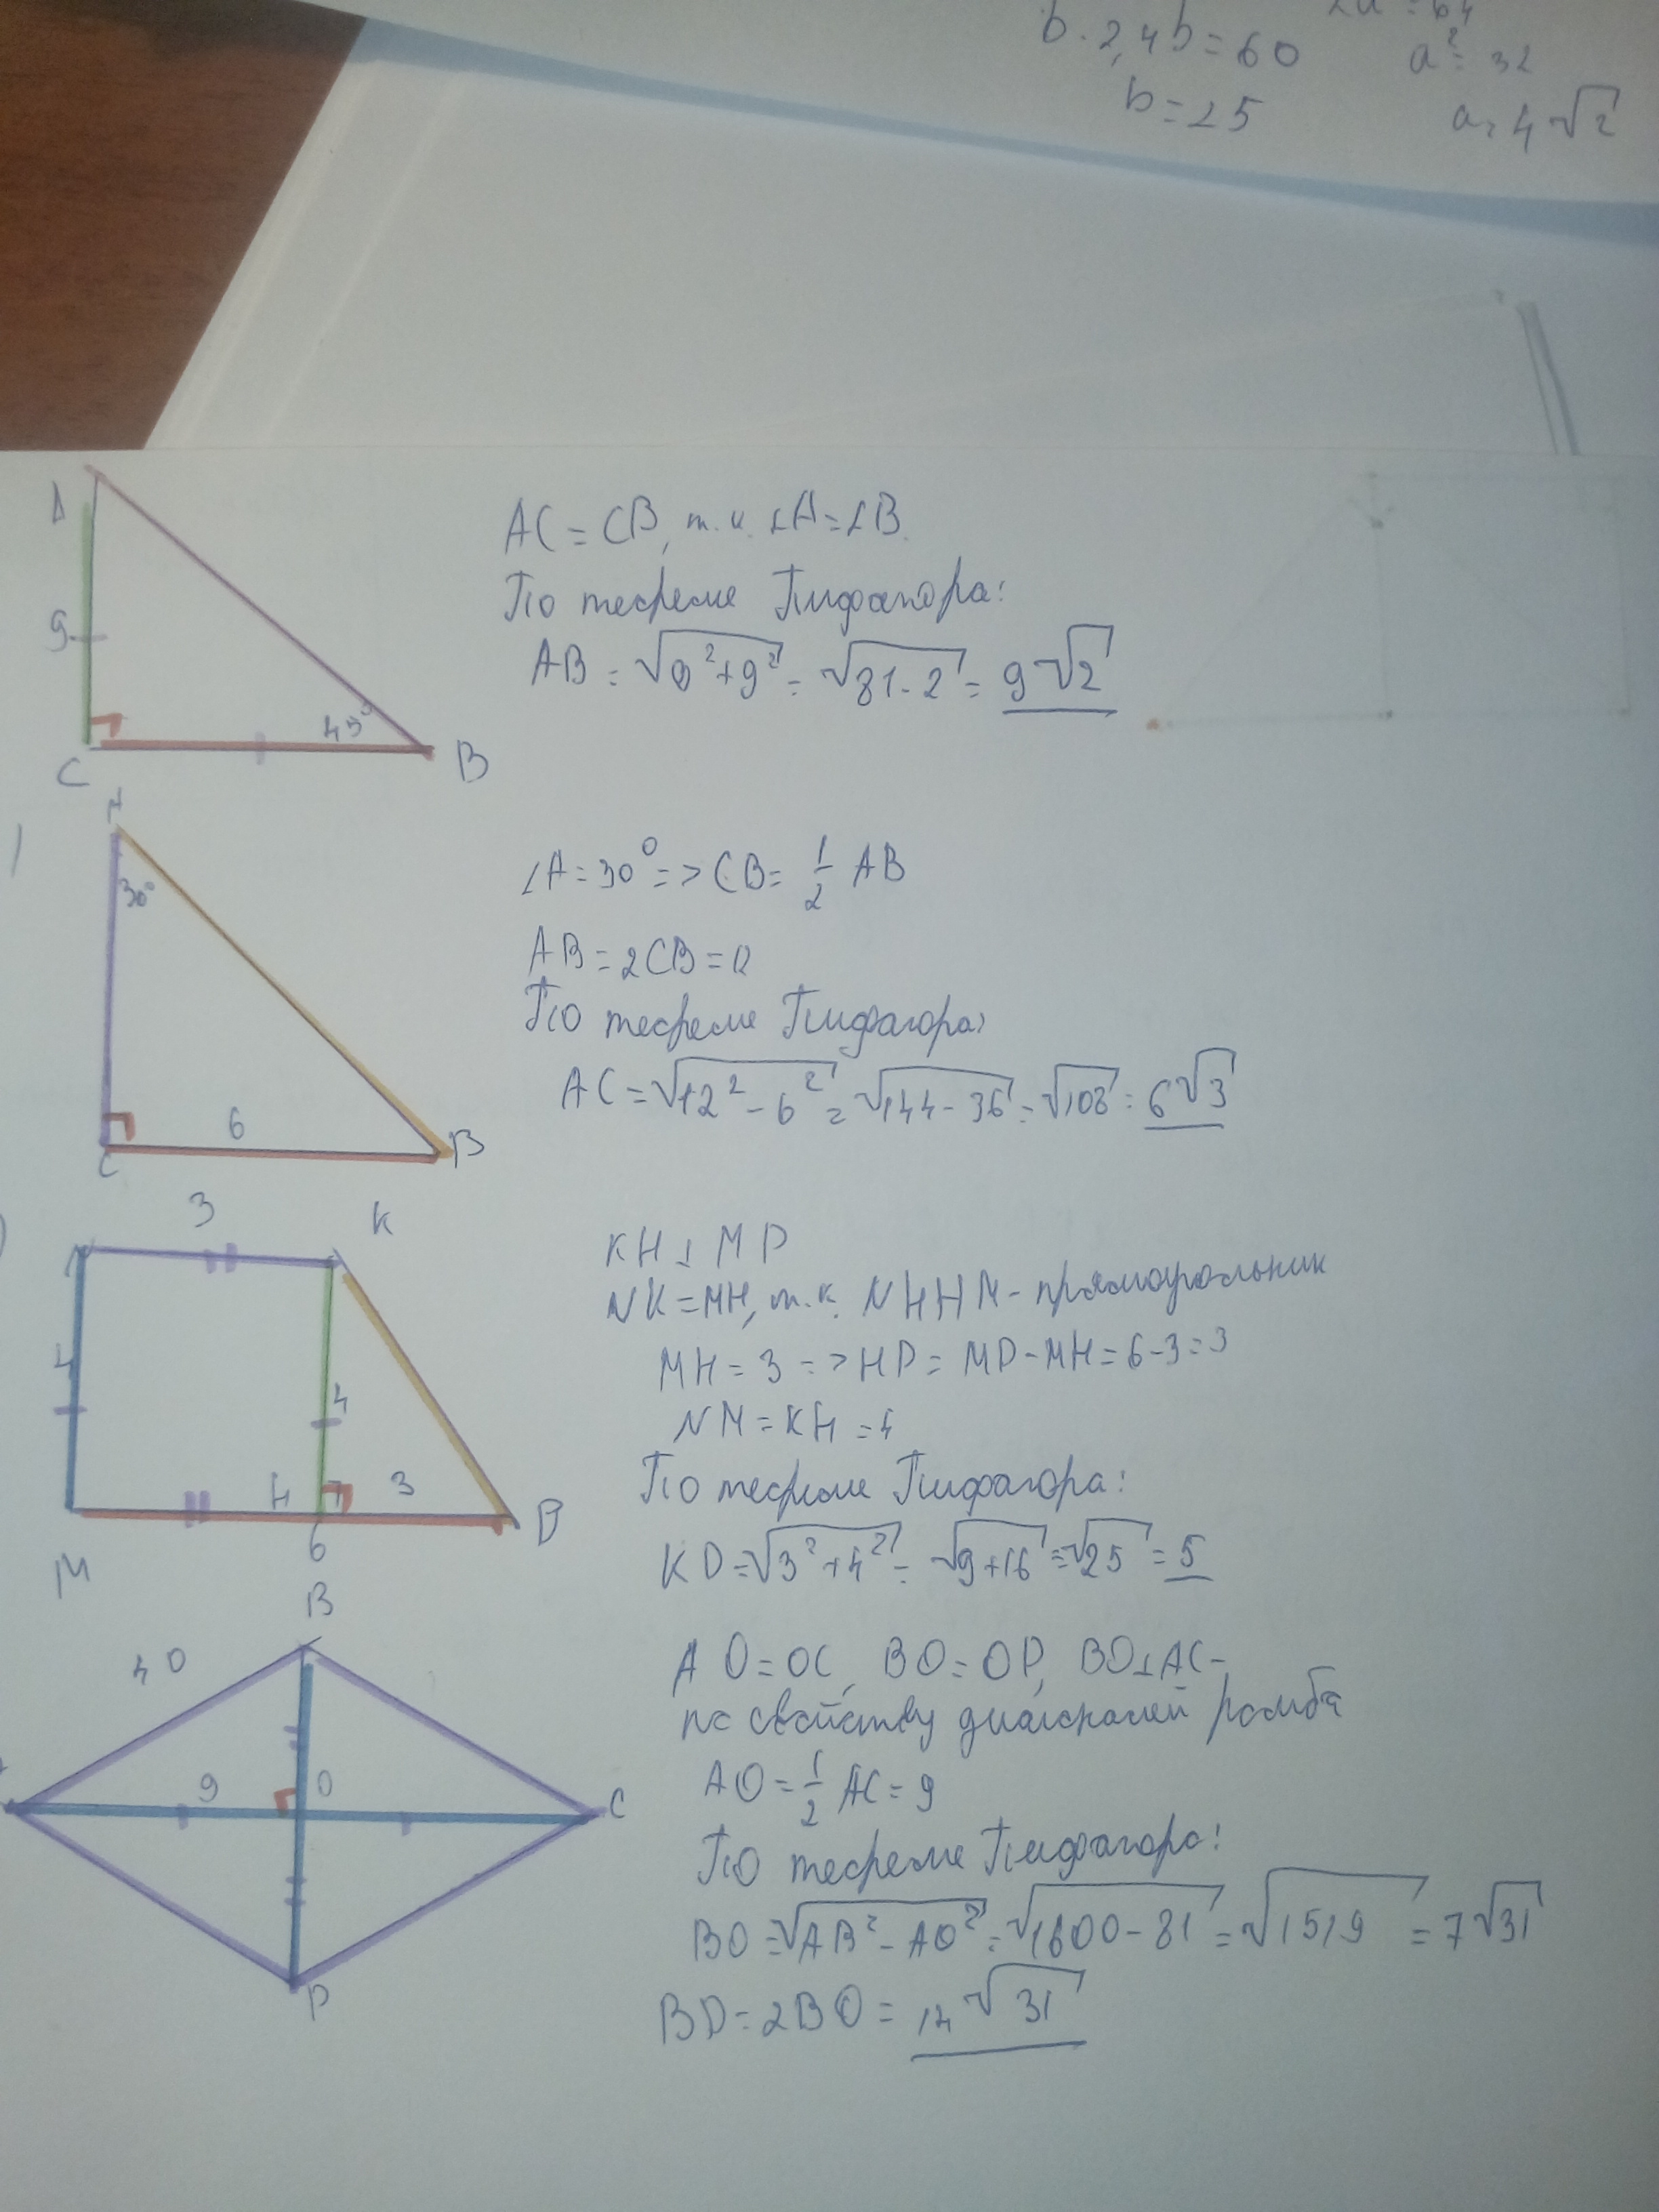 2a² = 64
b · 2,4b = 60
a² = 32
b = 25
a = 4√2
A
9
45°
C
B
AC = CB, т.к. ∠A = ∠B.
По теореме Пифагора:
AB = √9²+9² = √81·2 = 9√2
A
30°
6
C
B
∠A = 30° => CB = 1/2 AB
AB = 2CB = 12
По теореме Пифагора:
AC = √12² - 6² = √144 - 36 = √108 = 6√3
3
K
N
4
4
H
3
6
M
D
KH ⊥ MD
NK = MH, т.к. NHHM - прямоугольник
MH = 3 => HD = MD - MH = 6 - 3 = 3
NM = KH = 4
По теореме Пифагора:
KD = √3² + 4² = √9+16 = √25 = 5
B
40
9
O
C
D
AO = OC, BO = OD, BD ⊥ AC -
по свойству диагоналей ромба
AO = 1/2 AC = 9
По теореме Пифагора:
BO = √AB² - AO² = √1600 - 81 = √1519 = 7√31
BD = 2BO = 14√31